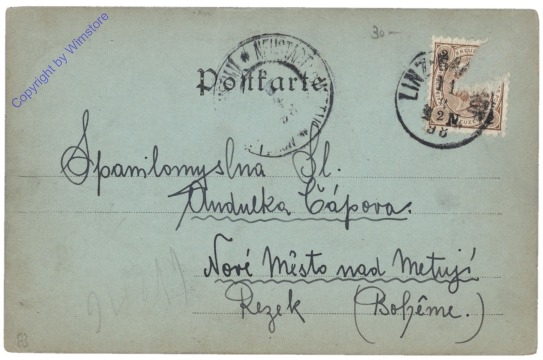 Copyright by Wimstore
30-
Postkarte
LINZ
98
Spanilomyslna Sl.
Andulka Čápova.
Nové Město nad Metují
Rezek (Bohême.)